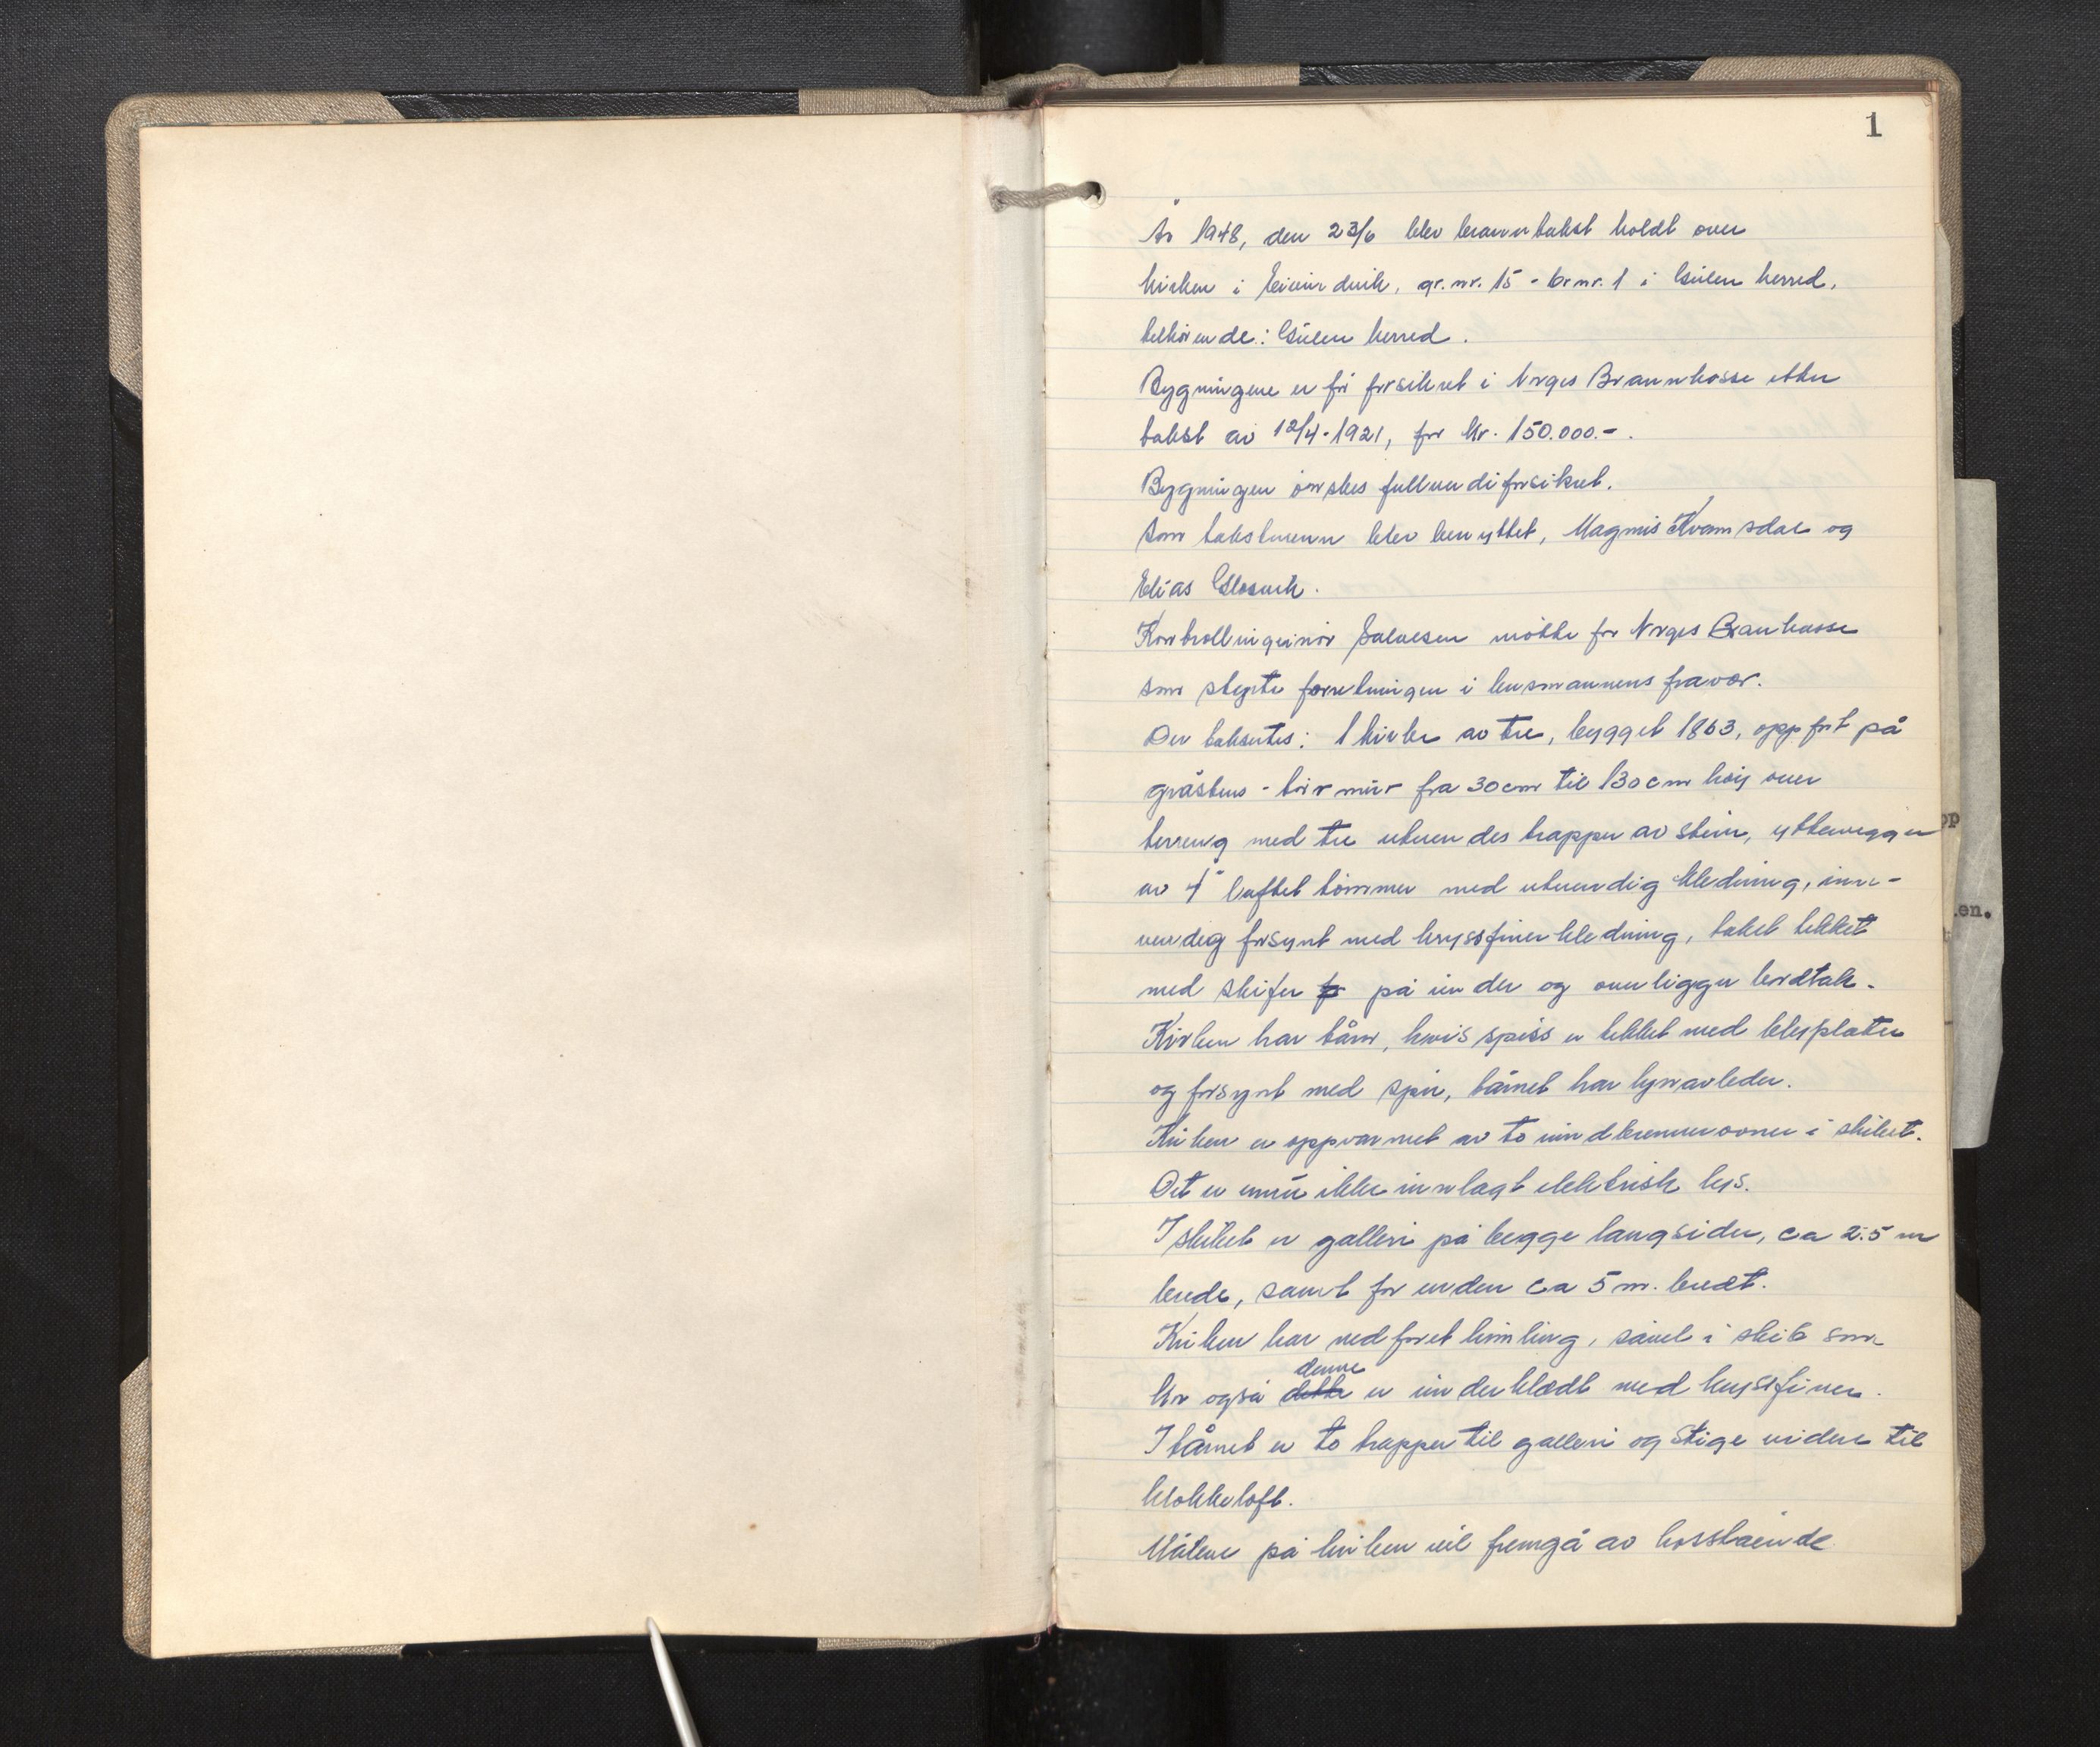 1
År 1948, den 23/6 blev branntakst holdt over
kirken i Eivindvik, gr. nr. 15 - br nr. 1 i Gulen herred,
tilhörende: Gulen herred.
Bygningene er för forsikret i Norges Brannkasse etter
takst av 12/4-1921, for kr. 150.000.-.
Bygningen önskes fullverdiforsikret.
Som takstmenn blev benyttet, Magnus Kvamsdal og
Elias
Kontrollingeniör Salvesen mötte for Norges Brankasse
som styrte forretningen i lensmannens fravær.
Der taksertes: 1 kirke av tre, bygget 1863, oppfört på
gråstens-törrmur fra 30cm til 130cm höy over
terreng med tre utvendes trapper av stein, yttervegger
av 4" laftet tömmer med utvendig kledning, inn-
vendig forsynt med kryssfiner kledning, taket tekket
med skifer på under og overligger bordtak.
Kirken har tårn, hvis spiss er tekket med blyplater
og forsynt med spir, tårnet har lynavleder.
Kirken er oppvarmet av to rundbrennerovner i skibet.
Det er ennu ikke innlagt elektrisk lys.
I skibet er galleri på begge langsider, ca 2.5 m
brede, samt for enden ca 5 m. bredt.
Kirken har nedforet himling, såvel i skib som
kor også dette denne er underklædt med kryssfiner.
I tårnet er to trapper til galleri og stige videre til
klokkeloft.
Målene på kirken vil fremgå av hosstående
pp
en.